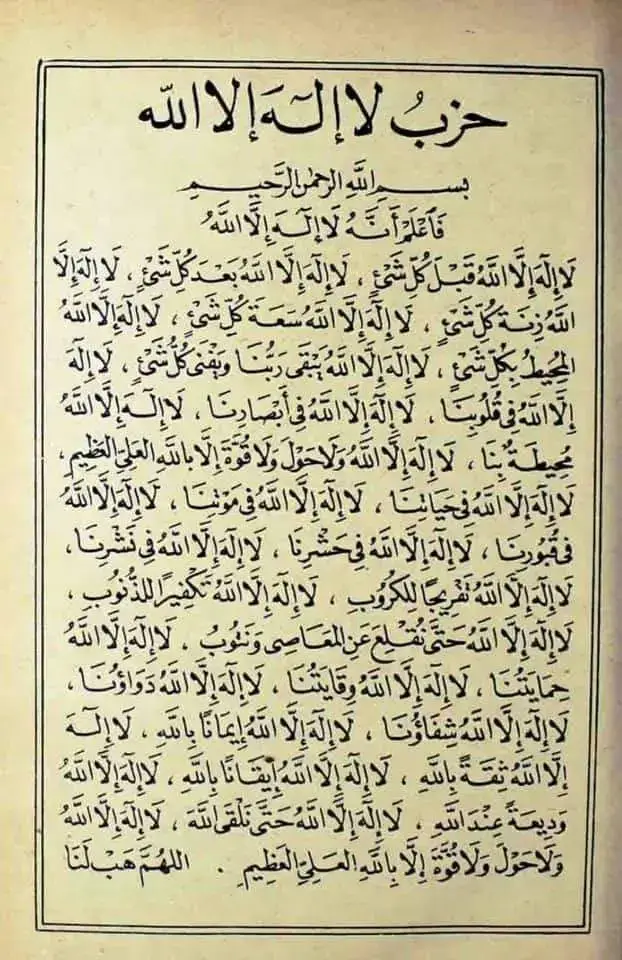 حزبُ لا إلـهَ إلا الله
بِسْمِ اللَّهِ الرَّحْمٰنِ الرَّحِيمِ
فَاعْلَمْ أَنَّهُ لَا إِلَـهَ إِلَّا اللَّهُ
لَا إِلَهَ إِلَّا اللَّهُ قَبْلَ كُلِّ شَيْءٍ ، لَا إِلَهَ إِلَّا اللَّهُ بَعْدَ كُلِّ شَيْءٍ ، لَا إِلَهَ إِلَّا
اللَّهُ زِنَةَ كُلِّ شَيْءٍ ، لَا إِلَهَ إِلَّا اللَّهُ سَعَةَ كُلِّ شَيْءٍ ، لَا إِلَهَ إِلَّا اللَّهُ
المُحِيطُ بِكُلِّ شَيْءٍ ، لَا إِلَهَ إِلَّا اللَّهُ يَبْقَى رَبُّنَا وَيَفْنَى كُلُّ شَيْءٍ ، لَا إِلَهَ
إِلَّا اللَّهُ فِي قُلُوبِنَا ، لَا إِلَهَ إِلَّا اللَّهُ فِي أَبْصَارِنَا ، لَا إِلَـهَ إِلَّا اللَّهُ
مُحِيطَةٌ بِنَا ، لَا إِلَهَ إِلَّا اللَّهُ وَلَا حَوْلَ وَلَا قُوَّةَ إِلَّا بِاللَّهِ العَلِيِّ العَظِيمِ ،
لَا إِلَهَ إِلَّا اللَّهُ فِي حَيَاتِنَا ، لَا إِلَهَ إِلَّا اللَّهُ فِي مَوْتِنَا ، لَا إِلَهَ إِلَّا اللَّهُ
فِي قُبُورِنَا ، لَا إِلَهَ إِلَّا اللَّهُ فِي حَشْرِنَا ، لَا إِلَهَ إِلَّا اللَّهُ فِي نَشْرِنَا ،
لَا إِلَهَ إِلَّا اللَّهُ تَفْرِيجًا لِلْكُرُوبِ ، لَا إِلَهَ إِلَّا اللَّهُ تَكْفِيرًا لِلذُّنُوبِ ،
لَا إِلَهَ إِلَّا اللَّهُ حَتَّى نُقْلِعَ عَنِ المَعَاصِى وَنَتُوبُ ، لَا إِلَهَ إِلَّا اللَّهُ
حِمَايَتُنَا ، لَا إِلَهَ إِلَّا اللَّهُ وِقَايَتُنَا ، لَا إِلَهَ إِلَّا اللَّهُ دَوَاؤُنَا ،
لَا إِلَهَ إِلَّا اللَّهُ شِفَاؤُنَا ، لَا إِلَهَ إِلَّا اللَّهُ إِيمَانًا بِاللَّهِ ، لَا إِلَـهَ
إِلَّا اللَّهُ ثِقَةً بِاللَّهِ ، لَا إِلَهَ إِلَّا اللَّهُ إِيقَانًا بِاللَّهِ ، لَا إِلَهَ إِلَّا اللَّهُ
وَدِيعَةً عِنْدَ اللَّهِ ، لَا إِلَهَ إِلَّا اللَّهُ حَتَّى نَلْقَى اللَّهَ ، لَا إِلَهَ إِلَّا اللَّهُ
وَلَا حَوْلَ وَلَا قُوَّةَ إِلَّا بِاللَّهِ العَلِيِّ العَظِيمِ . اللهُمَّ هَبْ لَنَا